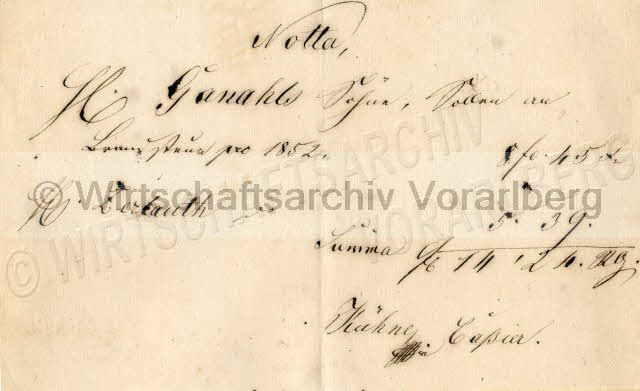 Notta,
H. Ganahls Söhne, Sollen an
Braussteur pro 1852. 8 f. 45 x.
H. Zerlauth do 5. 39.
Summa f 14 '24.
Kühne Cassier.
© Wirtschaftsarchiv Vorarlberg
© WIRTSCHAFTSARCHIV VORARLBERG